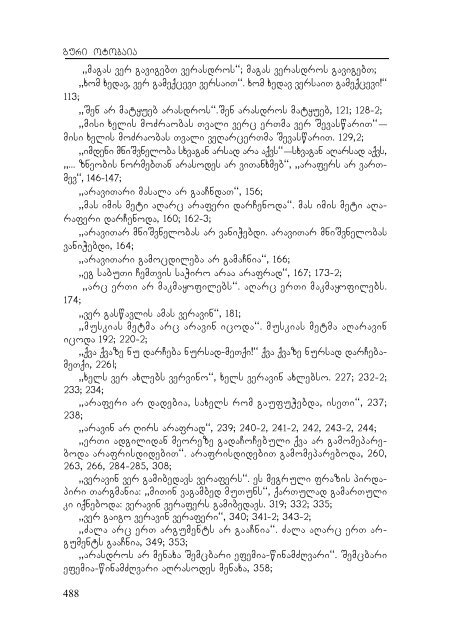 გური ოტობაია
„მაგას ვერ გავიგებთ ვერასდროს“; მაგას ვერასდროს გავიგებთ;
„ხომ ხედავ, ვერ გამექცევი ვერსაით“. ხომ ხედავ ვერსაით გამექცევი!“
113;
„შენ არ მატყუებ არასდროს“.შენ არასდროს მატყუებ, 121; 128-2;
„მისი ხელის მოძრაობას თვალი ვერც ერთმა ვერ შევასწარით“—
მისი ხელის მოძრაობას თვალი ვეღარცერთმა შევასწარით. 129,2;
„იმდენი მნიშვნელობა სხვაგან არსად არა აქვს“—სხვაგან აღარსად აქვს,
„... ზნეობის ნორმებთან არასოდეს არ ვითანხმებ“, „არაფერს არ ვართ-
მევ“, 146-147;
„არავითარი მასალა არ გააჩნდათ“, 156;
„მას იმის მეტი აღარც არაფერი დარჩენოდა“. მას იმის მეტი აღა-
რაფერი დარჩენოდა, 160; 162-3;
„არავითარ მნიშვნელობას არ ვანიჭებდი. არავითარ მნიშვნელობას
ვანიჭებდი, 164;
„არავითარი გამოცდილება არ გამაჩნია“, 166;
„ეგ საბუთი ჩემთვის საჭირო არაა არაფრად“, 167; 173-2;
„არც ერთი არ მაკმაყოფილებს“. აღარც ერთი მაკმაყოფილებს.
174;
„ვერ გასწავლის ამას ვერავინ“, 181;
„მუსკიას მეტმა არც არავინ იცოდა“. მუსკიას მეტმა აღარავინ
იცოდა 192; 220-2;
„ქვა ქვაზე ნუ დარჩება ნურსად-მეთქი!“ ქვა ქვაზე ნურსად დარჩება-
მეთქი, 226l;
„ხელს ვერ ახლებს ვერვინო“, ხელს ვერავინ ახლებსო. 227; 232-2;
233; 234;
„არაფერი არ დადებია, სახელს რომ გაუფუჭებდა, ისეთი“, 237;
238;
„არავინ არ ღირს არაფრად“, 239; 240-2, 241-2, 242, 243-2, 244;
„ერთი ადგილიდან მეორეზე გადაჩოჩებული ქვა არ გამომეპარე-
ბოდა არაფრისდიდებით“. არაფრისდიდებით გამომეპარებოდა, 260,
263, 266, 284-285, 308;
„ვერავინ ვერ გამიბედავს ვერაფერს“. ეს მეგრული ფრაზის პირდა-
პირი თარგმანია: „მითინ ვაგამბედ მუთუნს“, ქართულად გამართული
კი იქნებოდა: ვერავინ ვერაფერს გამიბედავს. 319; 332; 335;
„ვერ გაიგო ვერავინ ვერაფერი“, 340; 341-2; 343-2;
„ძალა არც ერთ არგუმენტს არ გააჩნია“. ძალა აღარც ერთ არ-
გუმენტს გააჩნია, 349; 353;
„არასდროს არ მენახა შემცბარი ეფემია-წინამძღვარი“. შემცბარი
ეფემია-წინამძღვარი აღრასოდეს მენახა, 358;
488